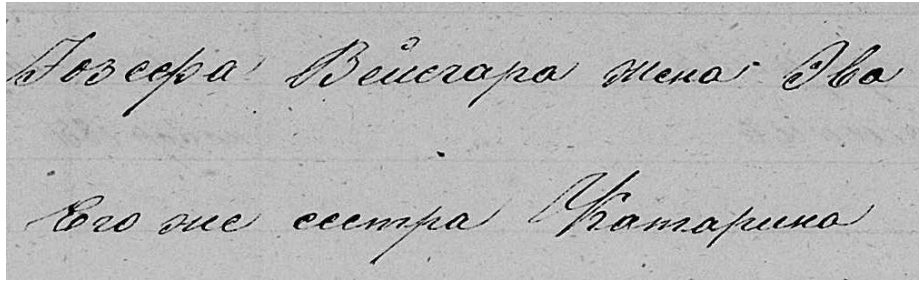 Іозефа Вейсгара жена Эва
Его же сестра Катарина